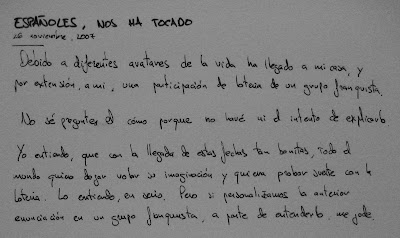 ESPAÑOLES, NOS HA TOCADO
26 noviembre, 2007
Debido a diferentes avatares de la vida ha llegado a mi casa, y
por extensión, a mi, una participación de lotería de un grupo franquista.
No sé pregunten el cómo porque no haré ni el intento de explicarlo
Yo entiendo, que con la llegada de estas fechas tan bonitas, todo el
mundo quiera dejar volar su imaginación y quieran probar suerte con la
lotería. Lo entiendo, en serio. Pero si personalizamos la anterior
enunciación en un grupo franquista, a parte de entenderlo, me jode